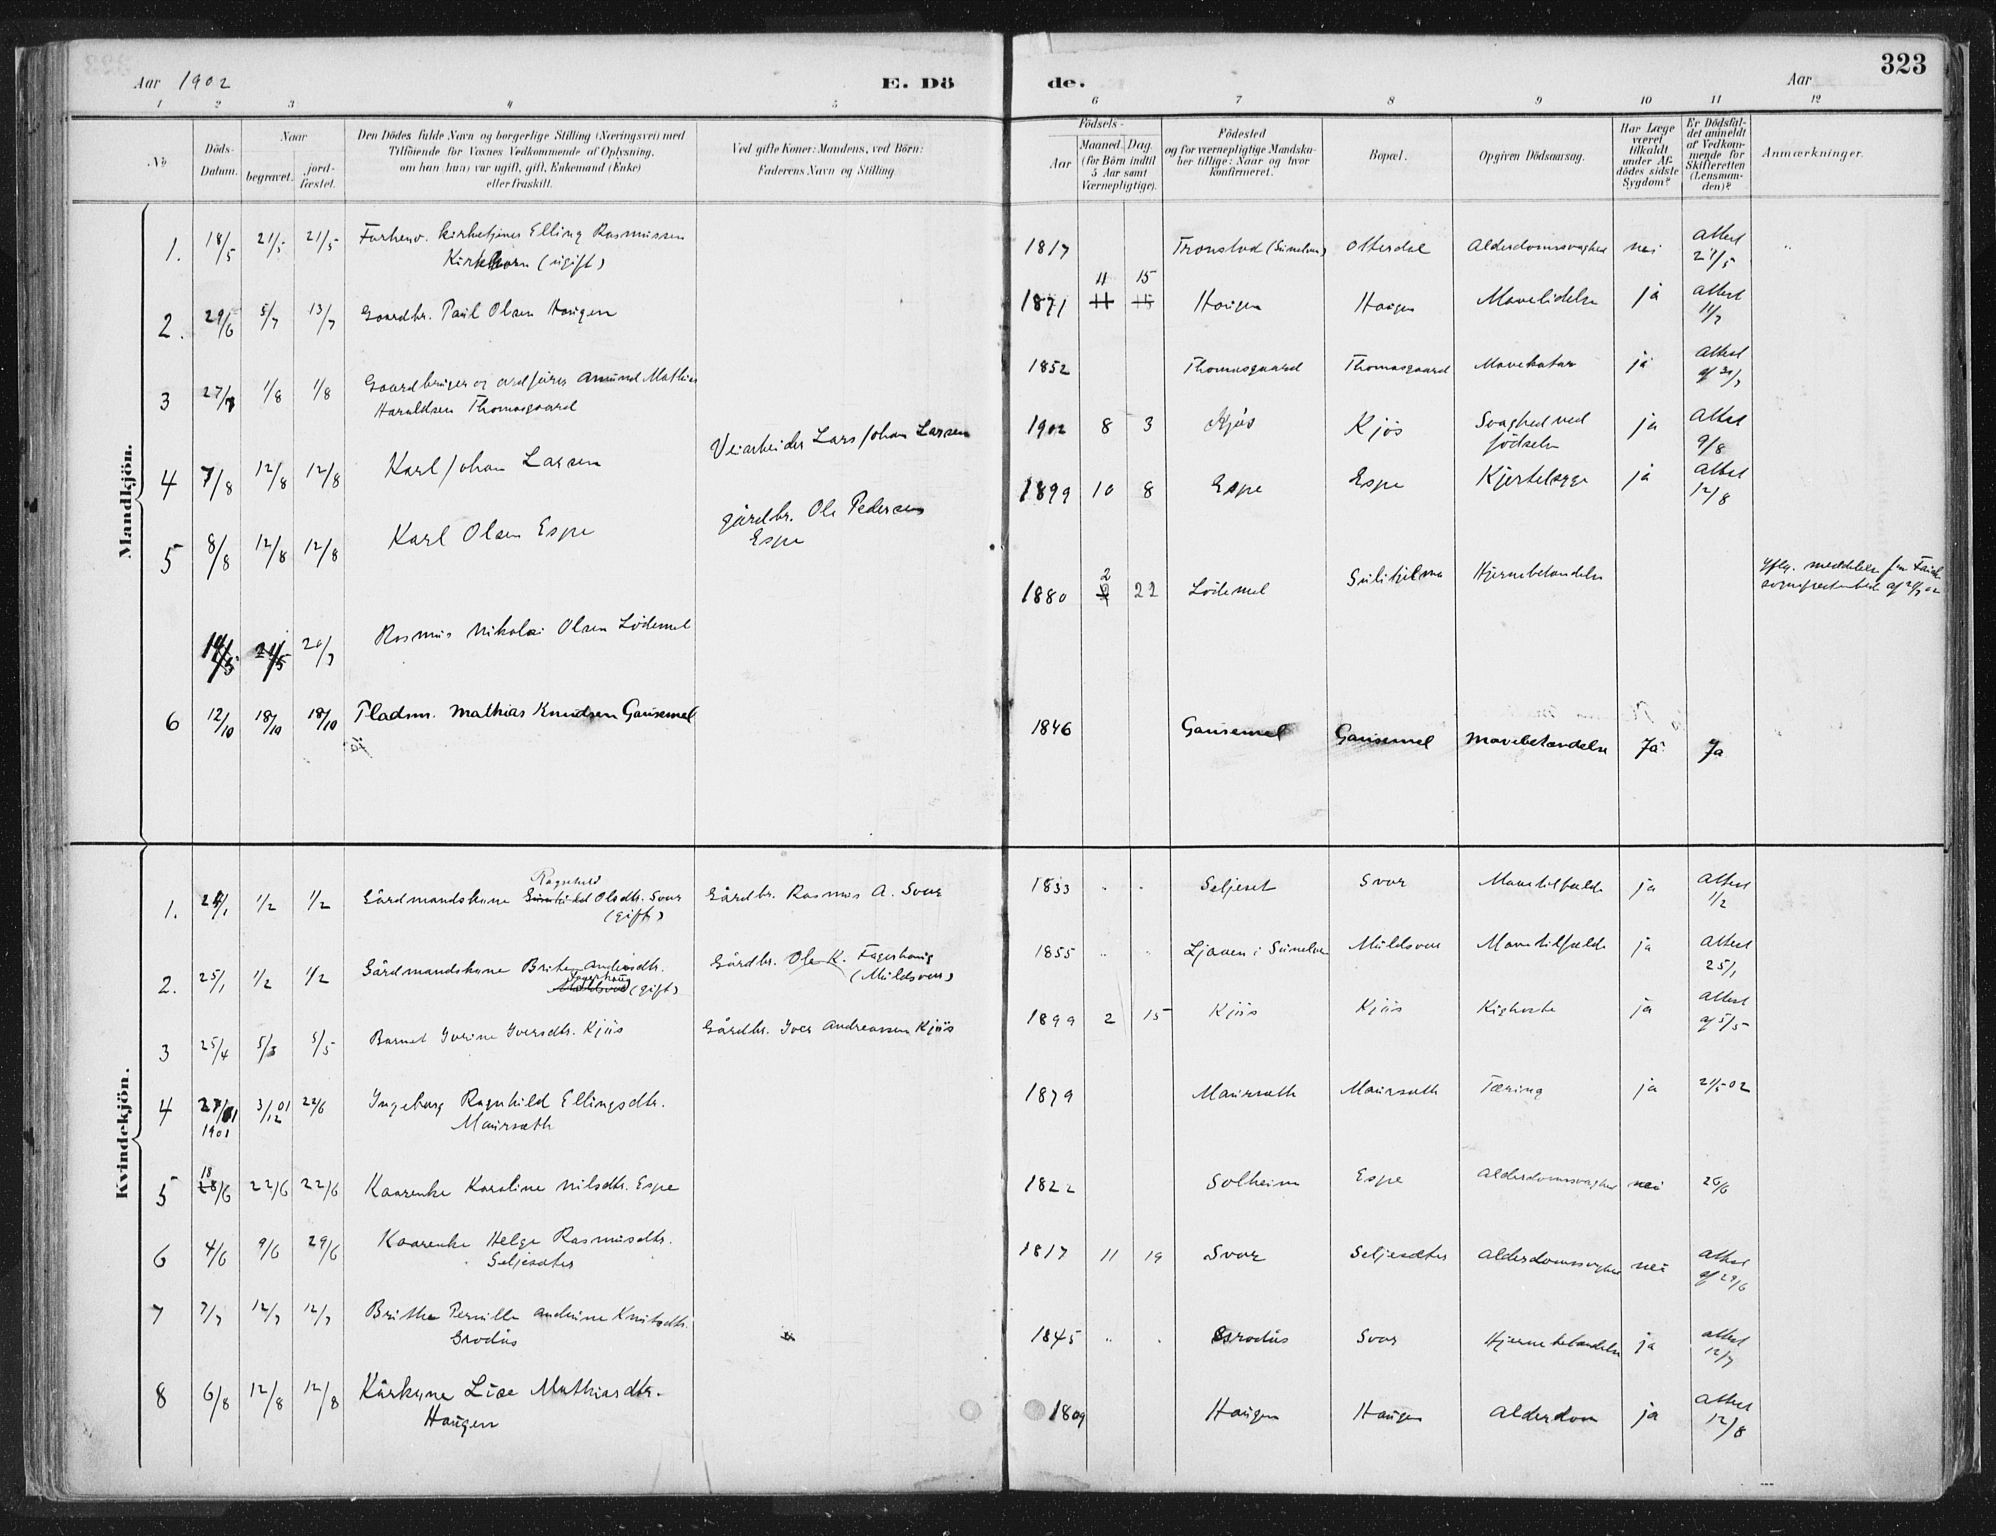 Aar 1902
E. Dö
de.
Aar
323
1 2 3 4 5 6 7 8 9 10 11 12
No
Döds-
Datum.
Naar
begravet.
jord-
fæstet.
Den Dödes fulde Navn og borgerlige Stilling (Næringsvei) med
Tilföiende for Voxnes Vedkommende af Oplysning,
om han (hun) var ugift, gift, Enkemand (Enke)
eller fraskilt.
Ved gifte Koner: Mandens, ved Börn:
Faderens Navn og Stilling.
Födsels-
Aar
Maaned. Dag.
(for Börn indtil
5 Aar samt
Værnepligtige).
Födested
og for værnepligtige Mandska-
ber tillige: Naar og hvor
konfirmeret.
Bopæl.
Opgiven Dödsaarsag.
Har Læge
været
tilkaldt
under Af-
dödes sidste
Sygdom?
Er Dödsfal-
det anmeldt
af Vedkom-
mende for
Skifteretten
(Lensman-
den)?
Anmærkninger.
Mandkjön.
1. 18/5 21/5 21/5 Forhenv. kirketjener Elling Rasmussen
Kirkhorn (ugift)
1817 Tronstad (Sunelven) Otterdal Alderdomssvaghed nei Attest
21/5
2. 29/6 5/7 13/7 Gaardbr. Paul Olsen Haugen
11 15
1871 11 15 Haugen Haugen Mavelidelse ja Attest
11/7
3 27/7 1/8 1/8 Gaardbruger og ordfører Amund Mathias
Haraldsen Thomasgaard
1852 Thomasgaard Thomasgaard Mavekatar ja Attest
af 31/7
4 7/8 12/8 12/8 Karl Johan Larsen Veiarbeider Lars Johan Larsen
1902 8 3 Kjøs Kjøs Svaghed ved
fødselen ja Attest
9/8
5 8/8 12/8 12/8 Karl Olsen Espe gårdbr. Ole Pedersen
Espe
1899 10 8 Espe Espe Kjertelsyge ja Attest
12/8
14/5 21/5 20/7 Rasmus Nikolai Olsen Lødemel
2
1880 22 Lødemel Sulitjelma Hjernebetændelse
6 12/10 18/10 18/10 Pladsm. Mathias Knudsen Gausemel
1846 Gausemel Gausemel Mavebetændelse Ja Ja
Kvindekjön.
1. 24/1 1/2 1/2 Gårdmandskone Ragnhild Olsdtr. Svor
(gift)
Gårdbr. Rasmus A. Svor
1833 Seljeset Svor Mavetilfælde ja Attest
1/2
2. 25/1 1/2 1/2 Gårdmandskone Brite Andersdtr.
Fagerhaug (gift)
Gårdbr. Ole K. Fagerhaug
(Muldsvor)
1855 Ljøen i Sunelven Muldsvor Mavetilfælde ja Attest
25/1
3 25/4 5/5 5/5 Barnet Iverine Iversdtr. Kjøs Gårdbr. Iver Andreassen Kjøs
1899 2 15 Kjøs Kjøs Kighoste ja Attest
af 5/5
4 27/11 3/12 01 22/6 Ingeborg Ragnhild Ellingsdtr.
1901 Maursæth
1879 Maursæth Maursæth Tæring ja 21/5 02
5 18/6 22/6 22/6 Kaarenke Karoline Nilsdtr. Espe
1822 Solheim Espe Alderdomssvaghed nei 26/6
6 4/6 9/6 29/6 Kaarenke Helge Rasmusdtr.
Seljesæter
1817 11 19 Svor Seljesæter Alderdomssvaghed nei Attest
af 29/6
7 7/7 12/7 12/7 Brithe Pernille Andrine Knutsdtr.
Grodås
1845 Grodås Svor Hjernebetændelse ja Attest
12/7
8 6/8 12/8 12/8 Kårkone Lise Mathiasdtr.
Haugen
1809 Haugen Haugen Alderdom ja Attest
12/8